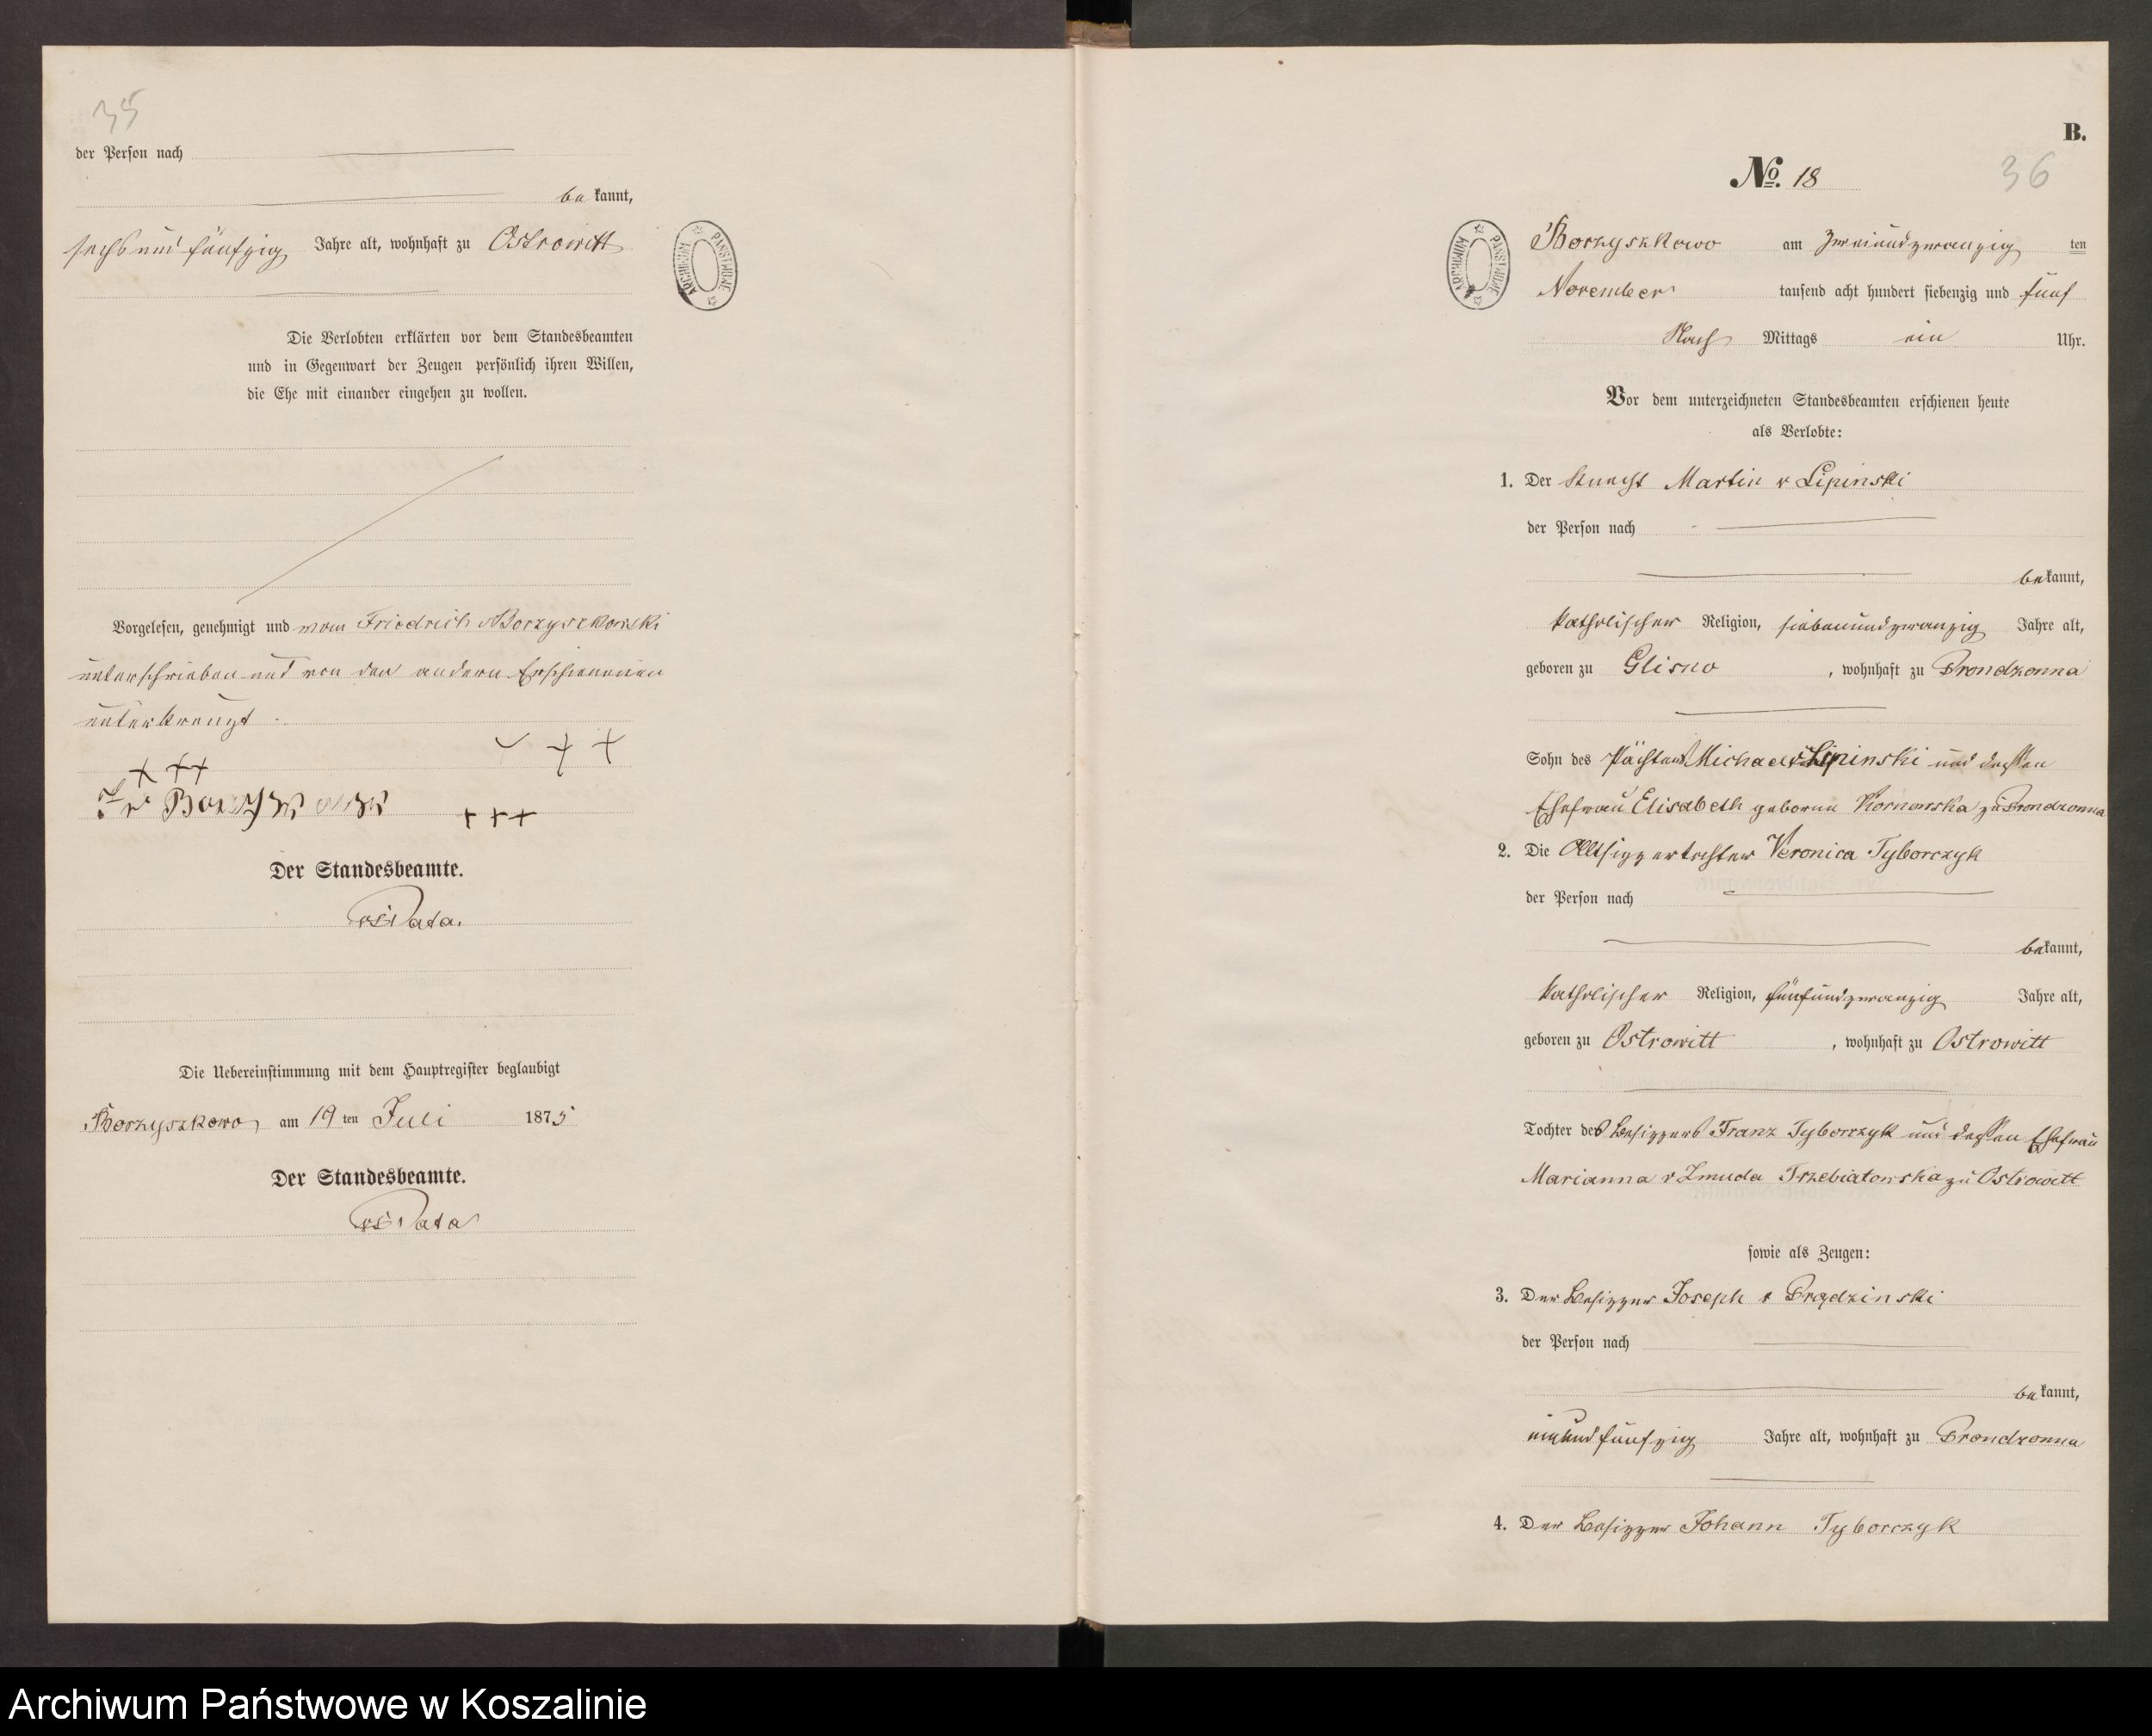 35
der Person nach
bekannt,
sechs und fünfzig Jahre alt, wohnhaft zu Ostrowitt
ARCHIWUM PAŃSTWOWE
Die Verlobten erklärten vor dem Standesbeamten
und in Gegenwart der Zeugen persönlich ihren Willen,
die Ehe mit einander eingehen zu wollen.
Vorgelesen, genehmigt und vom Friedrich v Borzyszkowski
unterschrieben und von den andern Erschienenen
unterkreuzt.
+ + +
+ + +
Der Standesbeamte.
Die Uebereinstimmung mit dem Hauptregister beglaubigt
Borzyszkowo am 19 ten Juli 1875
Der Standesbeamte.
B.
No. 18
36
ARCHIWUM PAŃSTWOWE
Borzyszkowo am zweiundzwanzig ten
November tausend acht hundert siebenzig und fünf
Nach Mittags ein Uhr.
Vor dem unterzeichneten Standesbeamten erschienen heute
als Verlobte:
1. Der Knecht Martin v Lipinski
der Person nach
bekannt,
katholischer Religion, siebenundzwanzig Jahre alt,
geboren zu Glisno, wohnhaft zu Prondzonna
Sohn des Pächters Michael v Lipinski und dessen
Ehefrau Elisabeth geborne Kornowska zu Prondzonna
2. Die Altsitzertochter Veronica Tyborczyk
der Person nach
bekannt,
katholischer Religion, fünfundzwanzig Jahre alt,
geboren zu Ostrowitt, wohnhaft zu Ostrowitt
Tochter des Besitzers Franz Tyborczyk und dessen Ehefrau
Marianna v Zmuda Trzebiatowska zu Ostrowitt
sowie als Zeugen:
3. Der Besitzer Joseph v Prądzinski
der Person nach
bekannt,
einundfünfzig Jahre alt, wohnhaft zu Prondzonna
4. Der Besitzer Johann Tyborczyk
Archiwum Państwowe w Koszalinie